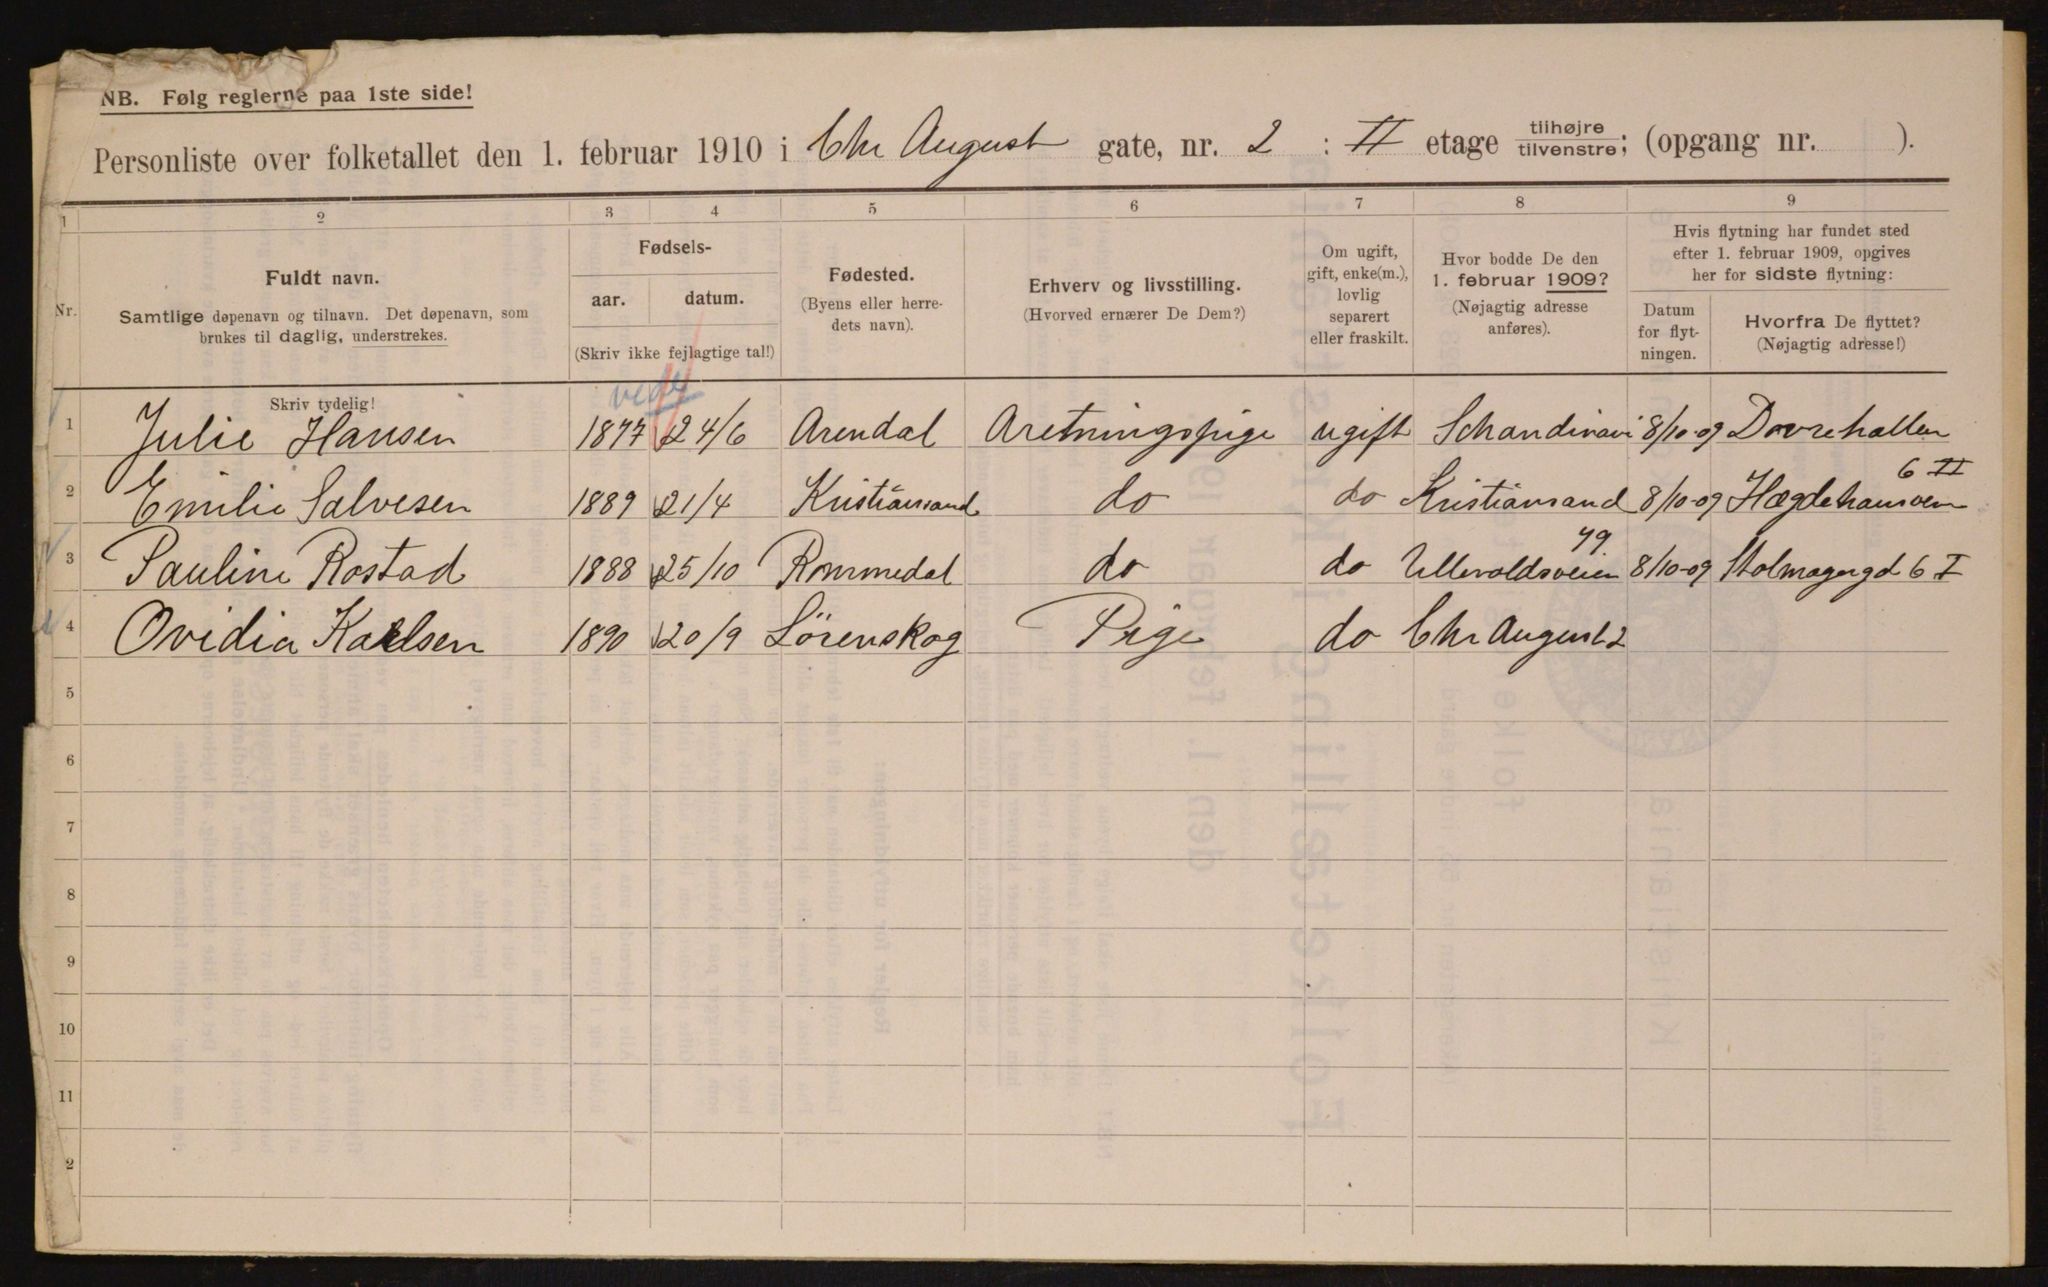 NB. Følg reglerne paa 1ste side!
Personliste over folketallet den 1. februar 1910 i Chr August gate, nr. 2 : II etage tilhøjre tilvenstre; (opgang nr. ).
1 2 3 4 5 6 7 8 9
Nr.
Fuldt navn.
Samtlige døpenavn og tilnavn. Det døpenavn, som
brukes til daglig, understrekes.
Skriv tydelig!
Fødsels-
aar. datum.
(Skriv ikke fejlagtige tal!)
Fødested.
(Byens eller herre-
dets navn).
Erhverv og livsstilling.
(Hvorved ernærer De Dem?)
Om ugift,
gift, enke(m.),
lovlig
separert
eller fraskilt.
Hvor bodde De den
1. februar 1909?
(Nøjagtig adresse
anføres).
Hvis flytning har fundet sted
efter 1. februar 1909, opgives
her for sidste flytning:
Datum
for flyt-
ningen.
Hvorfra De flyttet?
(Nøjagtig adresse!)
1 Julie Hansen 1877 24/6 Arendal Aretningspige ugift Schandinavi 8/10-09 Dovrehallen
2 Emilie Salvesen 1889 21/4 Kristiansand do do Kristiansand 8/10-09 Hægdehausvein 6 II
3 Pauline Rostad 1888 25/10 Rommedal do do Ullevoldsveien 49 8/10-09 Stolmagergd 6 I
4 Ovidia Karlsen 1890 20/9 Lörenskog Pige do Chr August 2
5
6
7
8
9
10
11
2